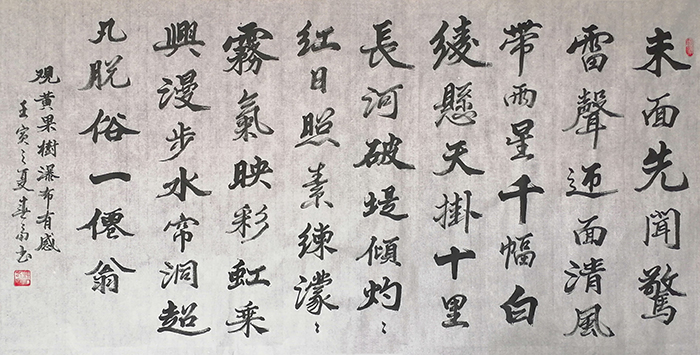 未面先聞驚
雷聲迎面清風
帶雨星千幅白
綾懸天掛十里
長河破堤傾灼〻
紅日照素練濛〻
霧氣映彩虹乘
興漫步水帘洞超
凡脫俗一僊翁
观黄果樹瀑布有感
壬寅之夏春翁书